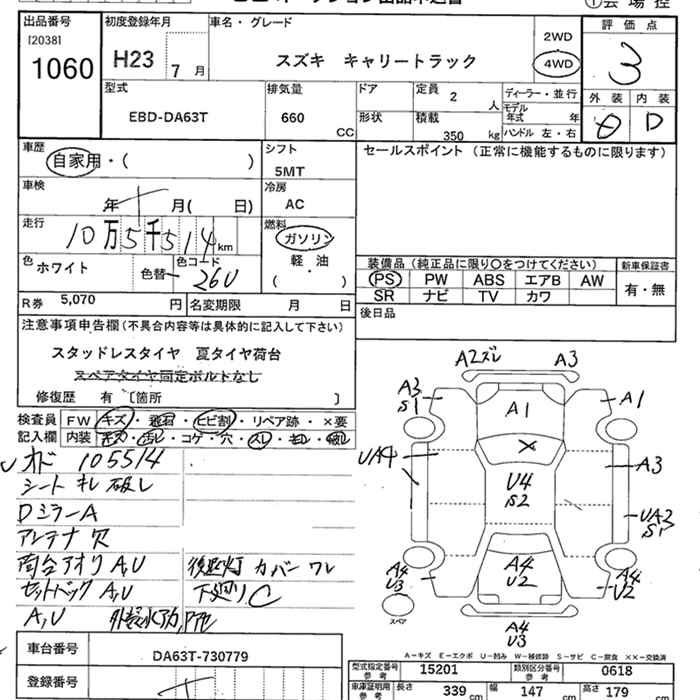 出品番号 初度登録年月 車名・グレード 評価点
[2038]
1060 H23 7月 スズキ キャリートラック 2WD 4WD 3
型式 排気量 ドア 定員 2人 ディーラー・並行 外装 内装
EBD-DA63T 660 CC 形状 積載 350 kg モデル年式 年 ハンドル 左・右 D
車歴 シフト セールスポイント (正常に機能するものに限ります)
自家用・( ) 5MT
車検 冷房
年 月( 日) AC
走行 燃料
10万5千514km ガソリン
色 ホワイト 色替 色コード 26U 軽油 ( )
装備品 (純正品に限り〇をつけてください) 新車保証書
PS PW ABS エアB AW 有・無
SR ナビ TV カワ
R券 5,070 円 名変期限 月 日 後日品
注意事項申告欄(不具合内容等は具体的に記入して下さい)
スタッドレスタイヤ 夏タイヤ荷台
スペアタイヤ固定ボルトなし
修復歴 有 〔箇所 〕
検査員 FW キズ・飛石・ヒビ割・リペア跡・×要
記入欄 内装 キズ・汚レ・コゲ・穴・スレ・キレ・破レ
オド 105514
シート キレ 破レ
DミラーA
アンテナ欠
両台アオリ A,U 後退灯 カバー ワレ
セットバック A,U 下廻り C
A,U
A2ズレ A3
A3 S1 A1 A1
UA4 U4 S2 A3
UA3 S1
A4 U3 A4 U2 A4 U2
スペア
A4 U3
A−キズ E−エクボ U−凹み W−補修跡 S−サビ C−腐食 ××−交換済
車台番号 DA63T-730779
型式指定番号 参考 15201 類別区分番号 参考 0618
登録番号
車庫証明用 参考 長さ 339cm 幅 147cm 高さ 179cm